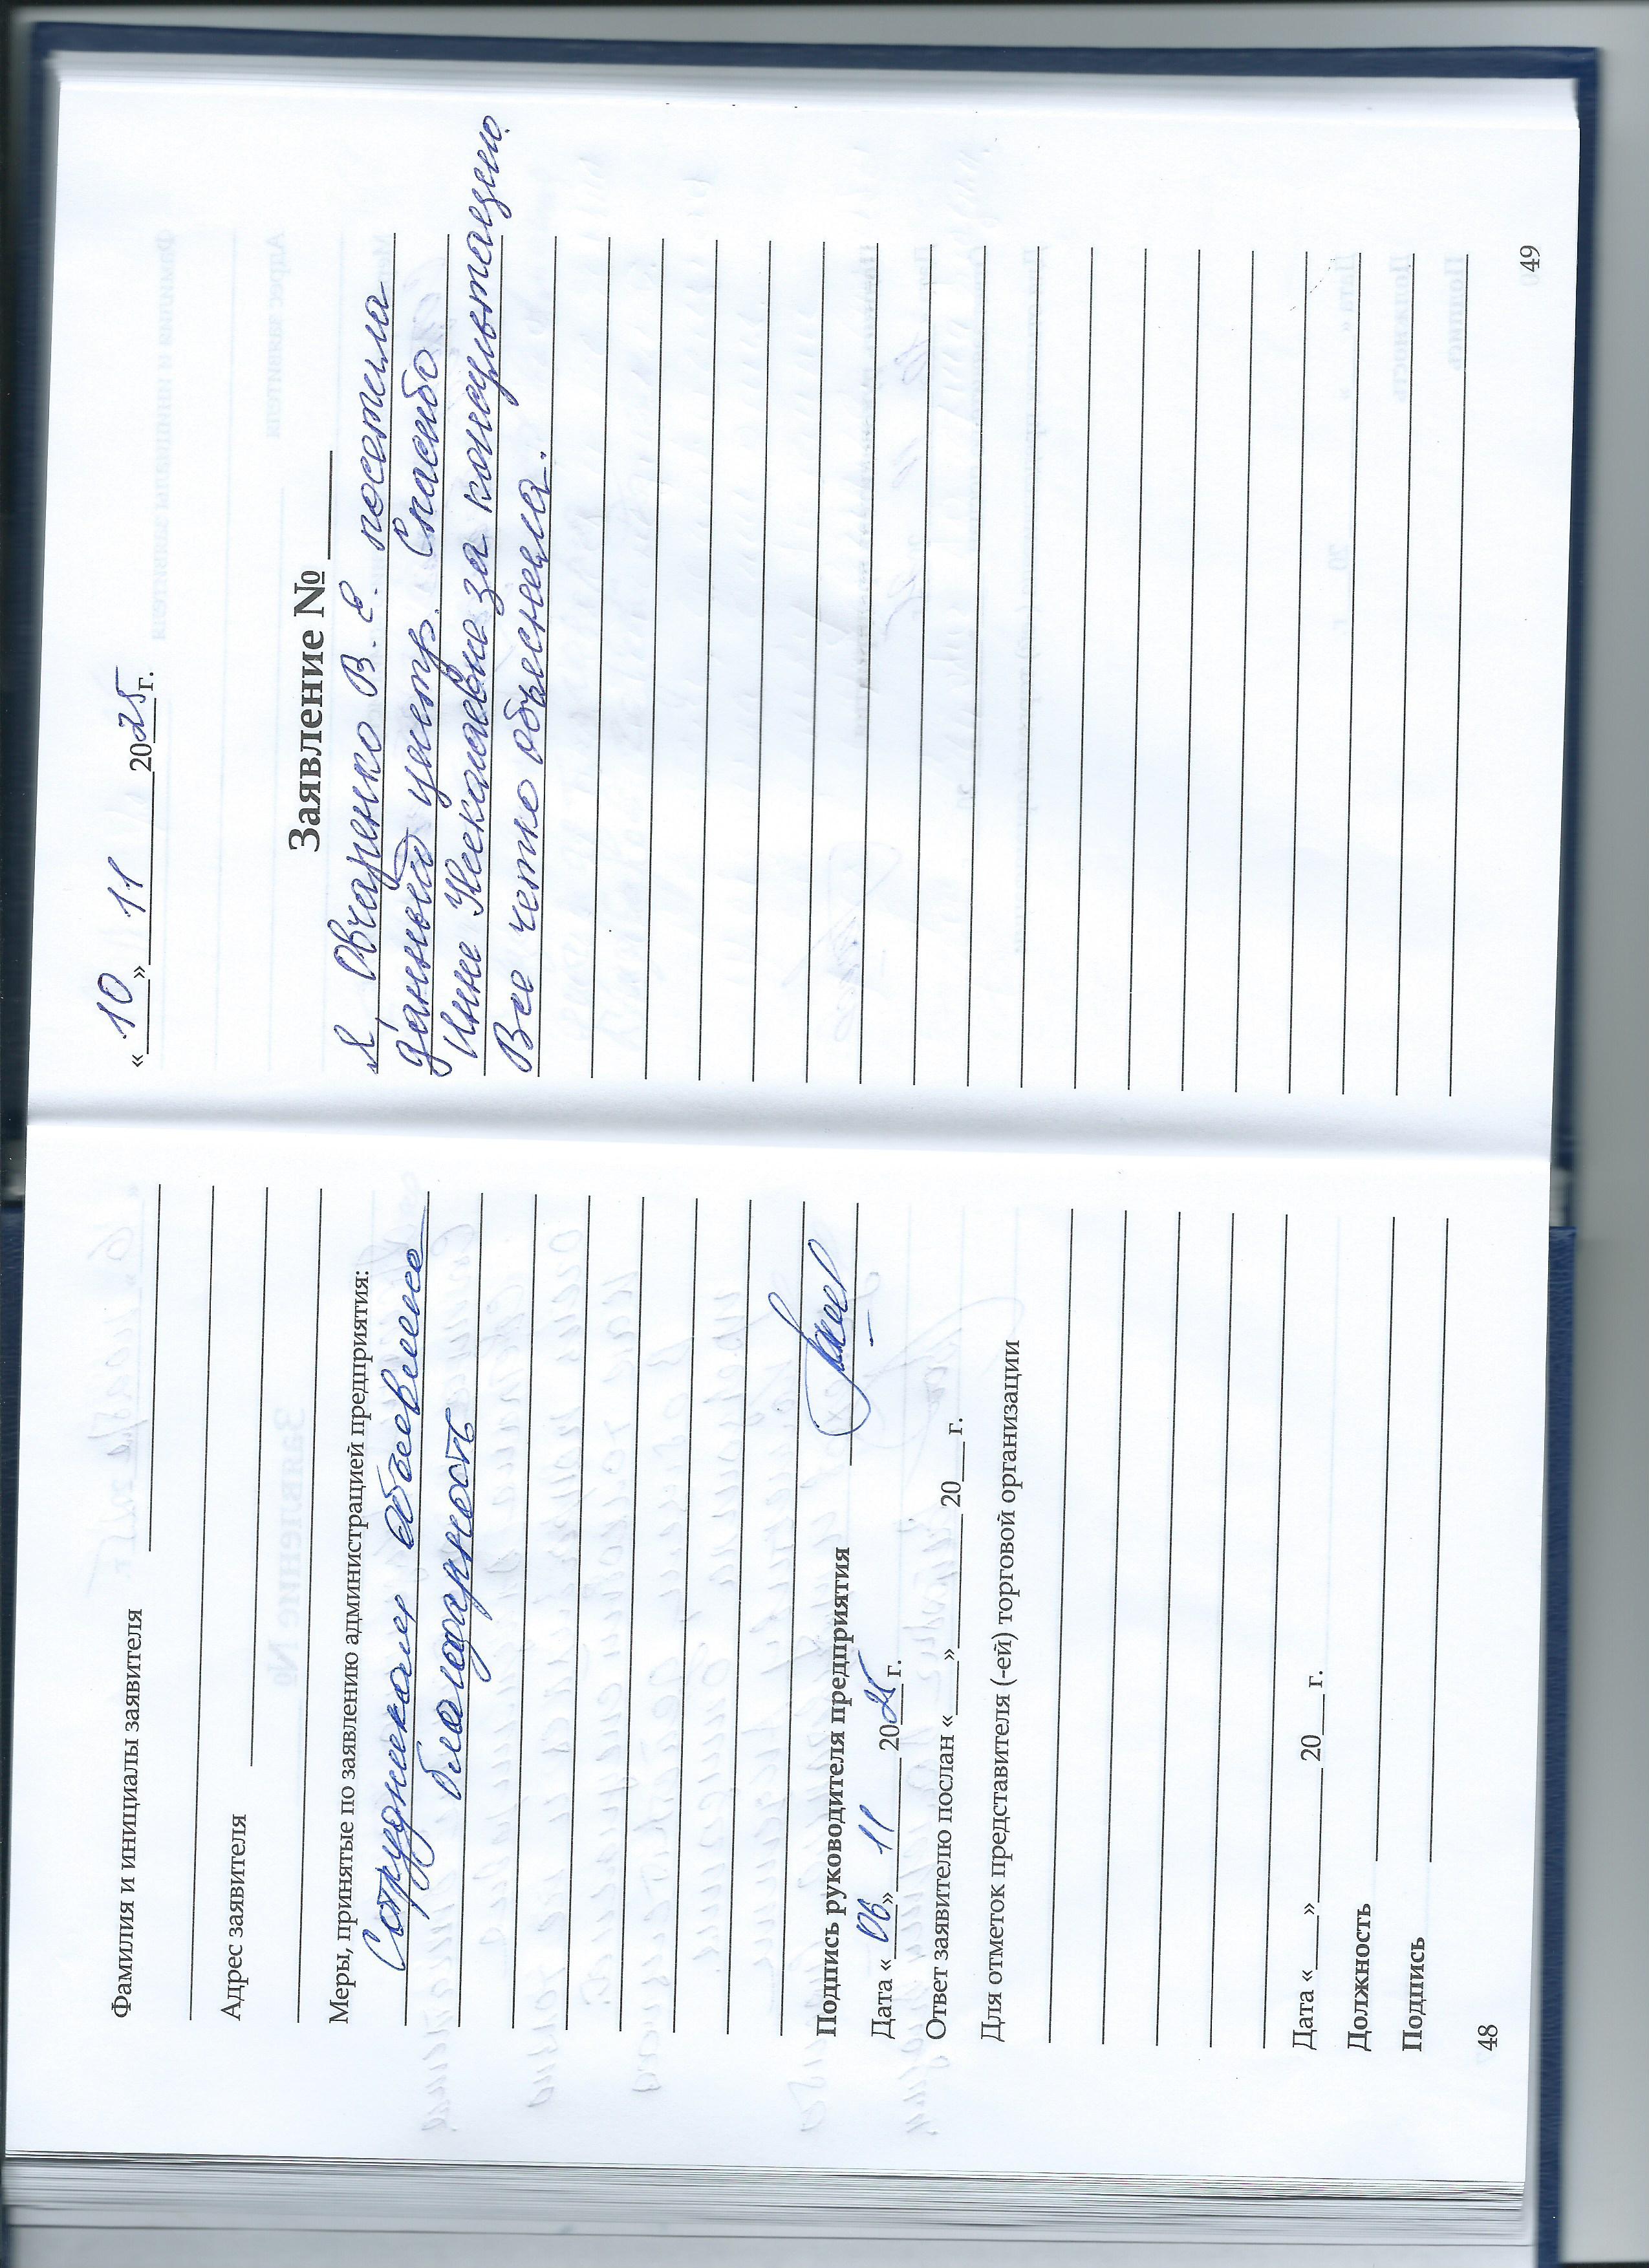 Фамилия и инициалы заявителя
Адрес заявителя
Меры, принятые по заявлению администрацией предприятия:
Сотрудникам объявлена
благодарность
Подпись руководителя предприятия
Дата «06» 11 2025г.
Ответ заявителю послан «___»________ 20___г.
Для отметок представителя (-ей) торговой организации
Дата «___»________ 20___г.
Должность
Подпись
48
«10» 11 2025г.
Заявление № ____
Я, Овчаренко В. Е. посетила
данный центр. Спасибо
Инне Николаевне за консультацию.
Все четко объяснила.
49